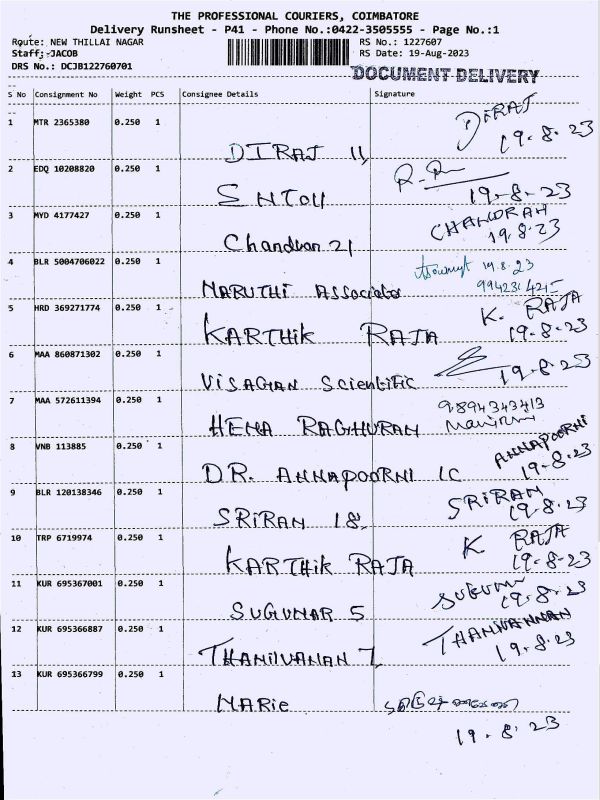 THE PROFESSIONAL COURIERS, COIMBATORE
Delivery Runsheet - P41 - Phone No.:0422-3505555 - Page No.:1
Route: NEW THILLAI NAGAR RS No.: 1227607
Staff;-JACOB RS Date: 19-Aug-2023
DRS No.: DCJB122760701
DOCUMENT DELIVERY
S No Consignment No Weight PCS Consignee Details Signature
1 MTR 2365380 0.250 1 DIRAJ 11, DIRAJ
19-8-23
2 EDQ 10208820 0.250 1 19-8-23
3 MYD 4177427 0.250 1 21 CHANDRAN
19.8.23
4 BLR 5004706022 0.250 1 MARUTHI Associates 19.8.23
5 HRD 369271774 0.250 1 KARTHIK RAJA K. RAJA
19-8-23
6 MAA 860871302 0.250 1 VISAGAN Scientific 19-8-23
7 MAA 572611394 0.250 1 HEMA RAGHURAM 9894343413
8 VNB 113885 0.250 1 DR. ANNAPOORNI ANNAPOORNI
19-8-23
9 BLR 120138346 0.250 1 SRIRAM 18, SRIRAM
19-8-23
10 TRP 6719974 0.250 1 KARTHIK RAJA K RAJA
19-8-23
11 KUR 695367001 0.250 1 SUGUMAR 5
19-8-23
12 KUR 695366887 0.250 1
19-8-23
13 KUR 695366799 0.250 1 MARIe
19-8-23